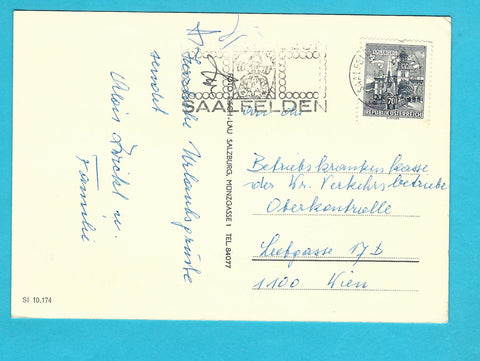 Herzliche Urlaubsgrüße
sendet
Alois
Familie
SI 10.174
FOTO JURISCH-LAU SALZBURG, MÜNZGASSE 1 TEL. 84077
SAALFELDEN
An die
Betriebskrankenkasse
der Wr. Verkehrsbetriebe
Oberkontrolle
17 D
1100 Wien
REPUBLIK ÖSTERREICH